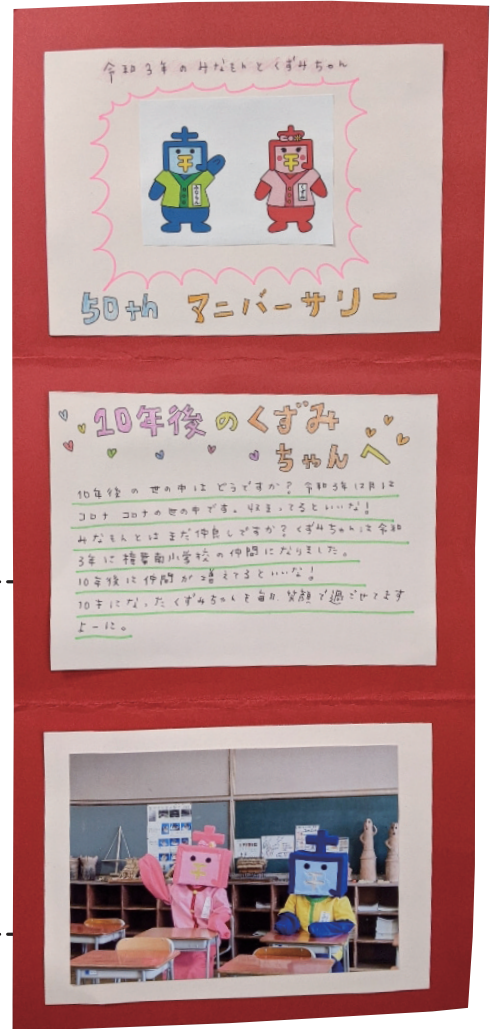 令和3年のみなもんとくずみちゃん
50th マニバーサリー
10年後のくずみ
ちゃんへ
10年後の世の中はどうですか？令和3年12月は
コロナコロナの世の中です。収まってるといいな！
みなもんとはまだ仲良しですか？くずみちゃんは令和
3年に 南小学校の仲間になりました。
10年後に仲間が増えてるといいな！
10才になったくずみちゃんも毎日笑顔で過ごせてます
よーに。